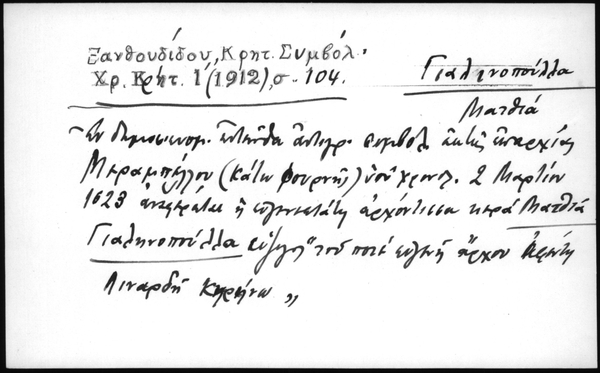 Ξανθουδίδου, Κρητ. Συμβόλ.
Χρ. Κρήτ. 1 (1912), σ. 104.
Γιαλινοπούλλα
Ματθιά
Ἐν δημοσιευομ. ἐνταῦθα ἀντιγρ. συμβολ. ἐκ τῆς ἐπαρχίας
Μεραμπέλλου (Κάτω Φουρνῆ) ὑπὸ χρονολ. 2 Μαρτίου
1623 ἀναφέρεται ἡ εὐγενεστάτη ἀρχόντισσα κερὰ Ματθιά
Γιαληνοπούλλα σύζυγος "τοῦ ποτὲ εὐγενῆ ἄρχου ἀφέντη
Λιναρδῆ